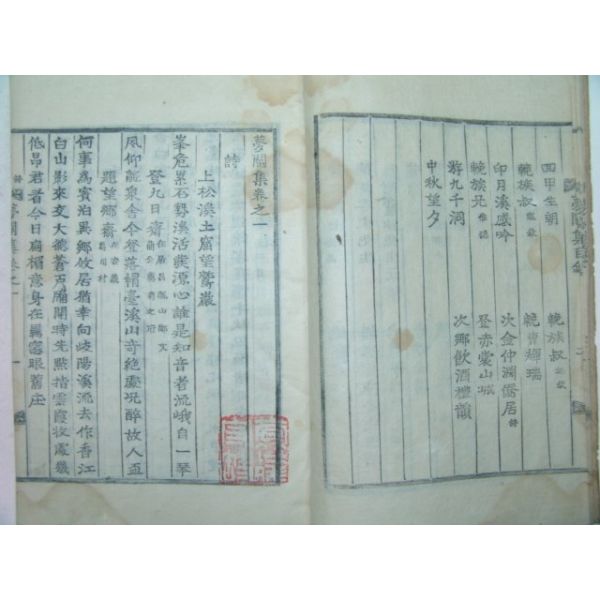 回甲生朝 輓族叔
輓族叔 輓曹穉瑞
印月溪感吟 次金仲淵僑居
輓族兄 登赤裳山城
游九千洞 次鄉飲酒禮韻
中秋望夕
夢關集卷之一
詩
上松溪土窟望鷲巖
峯危累石勢溪活源心誰是知音者流峨自一琴
登九日齋
風仰龍泉舍今登落帽臺溪山奇絶處況醉故人盃
題望鄉齋 葛川村
何事爲賓泊異鄉故居猶幸向岐陽溪流去作香江
白山影來交大德蒼戶開時先點指雲霞收處幾
低昂君看今日扁楣意身在異窓眼舊庄